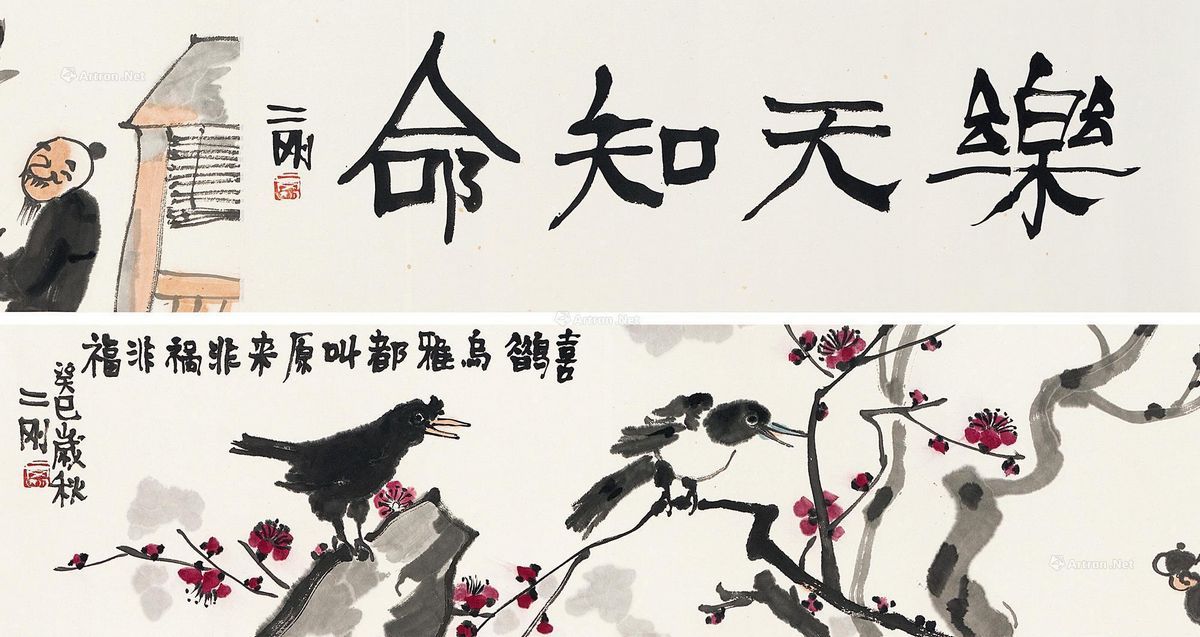 樂天知命
二刚
喜鵲烏雅都叫原来非禍非福
癸巳歲秋
二刚
Artron.Net
Artron.Net
Artron.Net